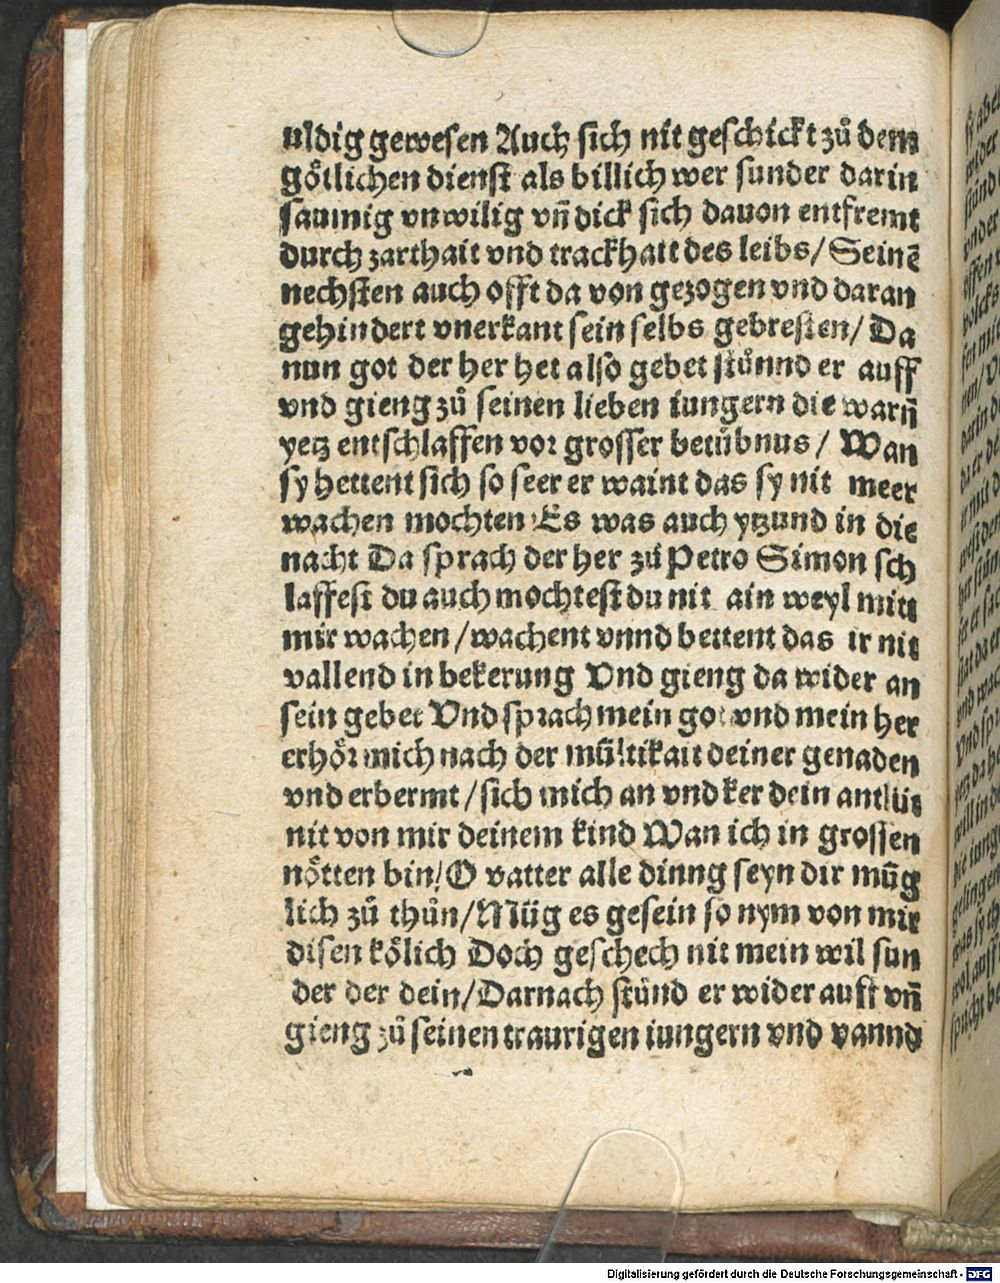 uldig gewesen Auch sich nit geschickt zuͦ dem
goͤtlichen dienst als billich wer sunder darin
saumig vnwilig vn̄ dick sich dauon entfremt
durch zarthait vnd trackhait des leibs/Seinē
nechsten auch offt da von gezogen vnd daran
gehindert vnerkant sein selbs gebresten/Da
nun got der her het also gebet stuͦnnd er auff
vnd gieng zuͦ seinen lieben iungern die warn̄
yetz entschlaffen vor grosser betuͤbnus/ Wan
sy hettent sich so seer er waint das sy nit meer
wachen mochten Es was auch ytzund in die
nacht Da sprach der her zuͦ Petro Simon sch
laffest du auch mochtest du nit ain weyl mitt
mir wachen/wachent vnnd bettent das ir nit
vallend in bekerung Vnd gieng da wider an
sein gebet Vnd sprach mein got vnd mein her
erhoͤr mich nach der muͤltikait deiner genaden
vnd erbermt/sich mich an vnd ker dein antlüt
nit von mir deinem kind Wan ich in grossen
noͤtten bin/O vatter alle dinng seyn dir muͤg
lich zuͦ thuͦn/Müg es gesein so nym von mir
disen koͤlich Doch geschech nit mein wil sun
der der dein/Darnach stuͦnd er wider auff vn̄
gieng zuͦ seinen traurigen iungern vnd vannd
Digitalisierung gefördert durch die Deutsche Forschungsgemeinschaft - DFG